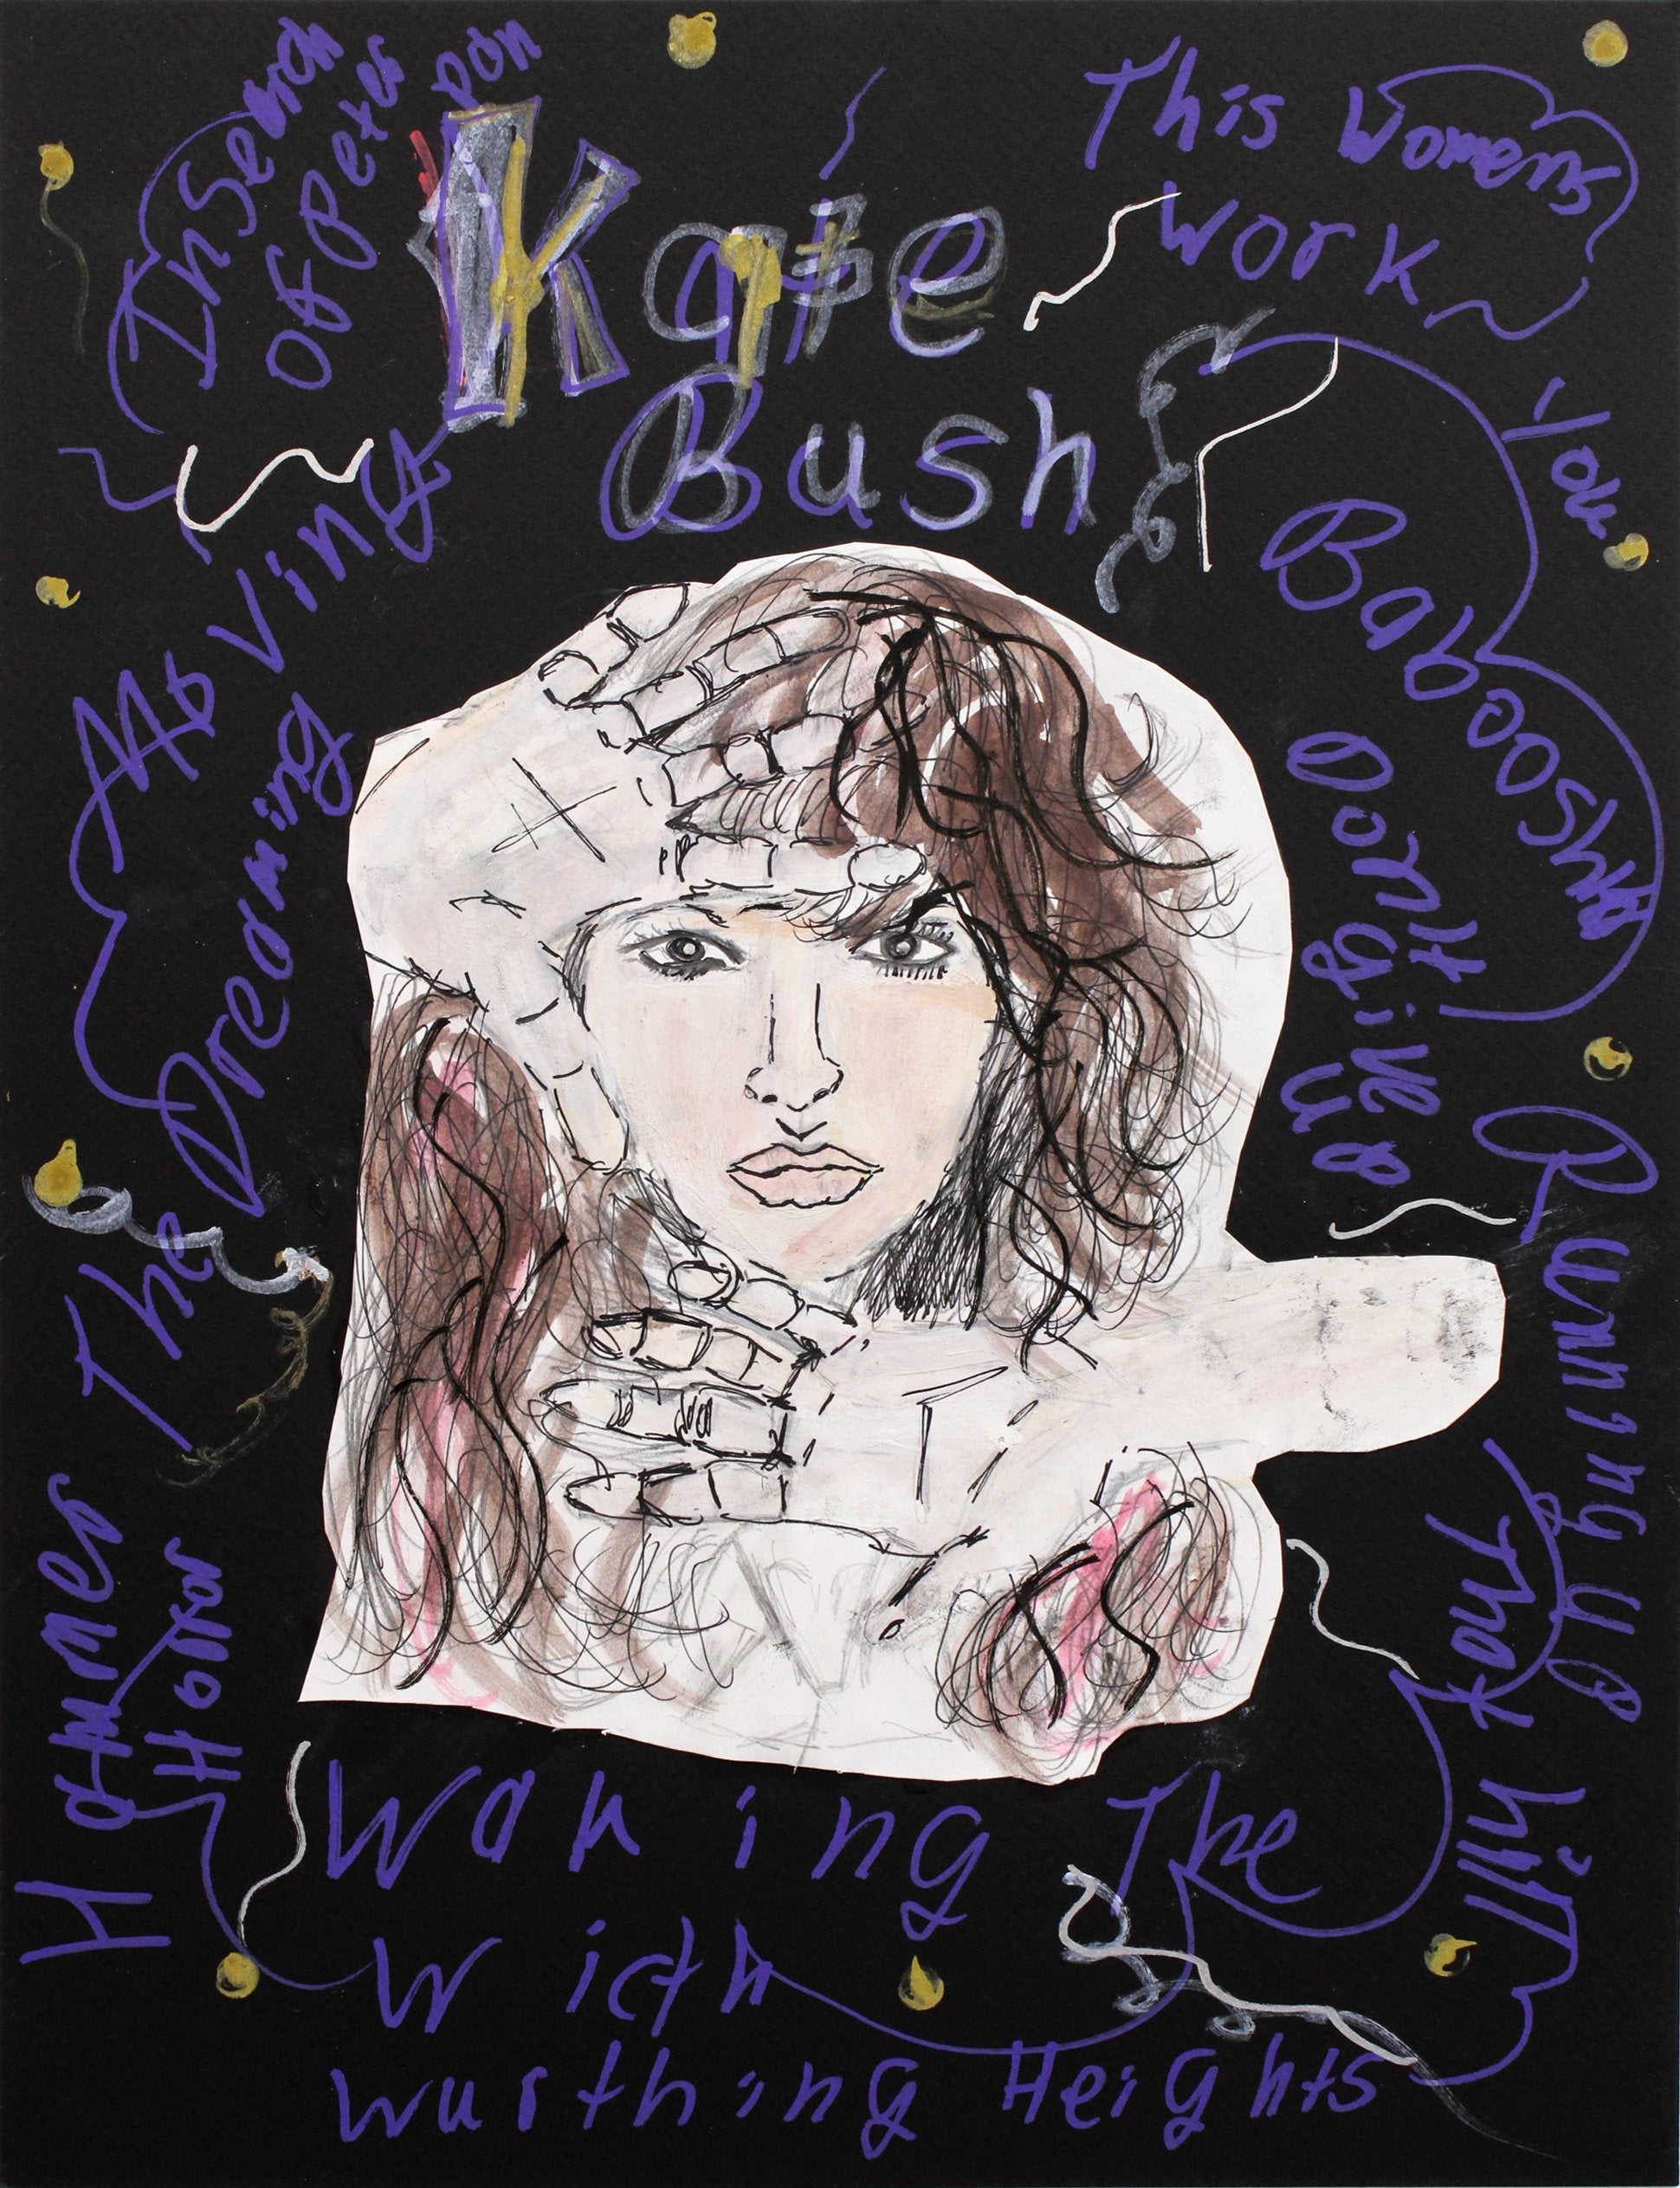 In Search
Of Peter
pan
Kate
Bush
This Womens
Work
You
Babooshka
Moving
The Dreaming
Running up
That
hill
Hammer
Horror
Waking The
Witch
Wurthing Heights